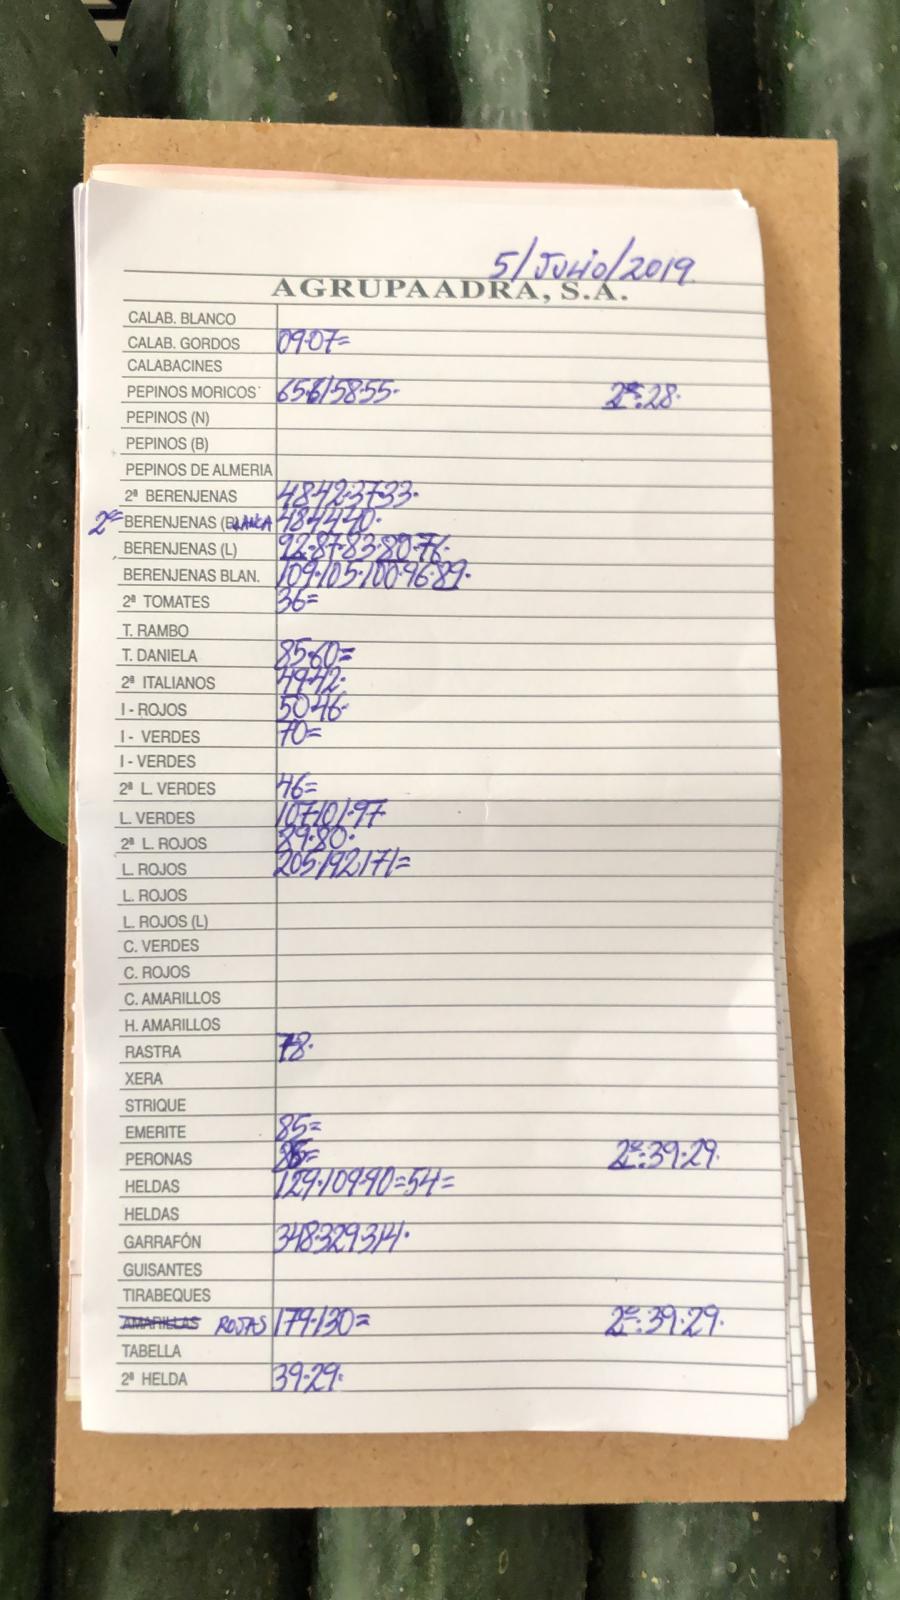 5/Julio/2019
AGRUPAADRA, S.A.
CALAB. BLANCO
CALAB. GORDOS 09·07=
CALABACINES
PEPINOS MORICOS 65·61·58·55· 2ª:28·
PEPINOS (N)
PEPINOS (B)
PEPINOS DE ALMERIA
2ª BERENJENAS 48·42·37·33·
2ª BERENJENAS (BLANCA 48·44·40·
BERENJENAS (L) 92·87·83·80·76·
BERENJENAS BLAN. 109·105·100·96·89·
2ª TOMATES 36=
T. RAMBO
T. DANIELA 85·60=
2ª ITALIANOS 49·42·
I - ROJOS 50·46·
I - VERDES 70=
I - VERDES
2ª L. VERDES 46=
L. VERDES 107·101·97·
2ª L. ROJOS 89·80·
L. ROJOS 205·192·171=
L. ROJOS
L. ROJOS (L)
C. VERDES
C. ROJOS
C. AMARILLOS
H. AMARILLOS
RASTRA 78·
XERA
STRIQUE
EMERITE 85=
PERONAS 2ª:39·29·
HELDAS 129·109·90=54=
HELDAS
GARRAFÓN 348·329·314·
GUISANTES
TIRABEQUES
AMARILLAS ROJAS 179·130= 2ª:39·29·
TABELLA
2ª HELDA 39·29·